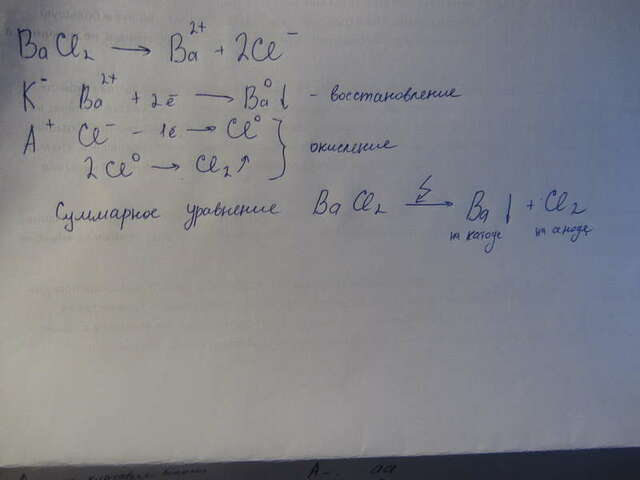 BaCl₂ → Ba²⁺ + 2Cl⁻
K⁻ Ba²⁺ + 2ē → Ba⁰↓ - восстановление
A⁺ Cl⁻ - 1ē → Cl⁰
2Cl⁰ → Cl₂↑ } окисление
Суммарное уравнение BaCl₂ → Ba↓ + Cl₂
на катоде на аноде